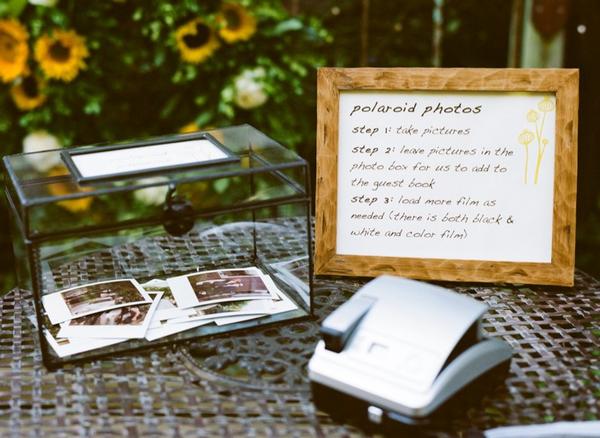 polaroid photos
step 1: take pictures
step 2: leave pictures in the
photo box for us to add to
the guest book
step 3: load more film as
needed (there is both black &
white and color film)